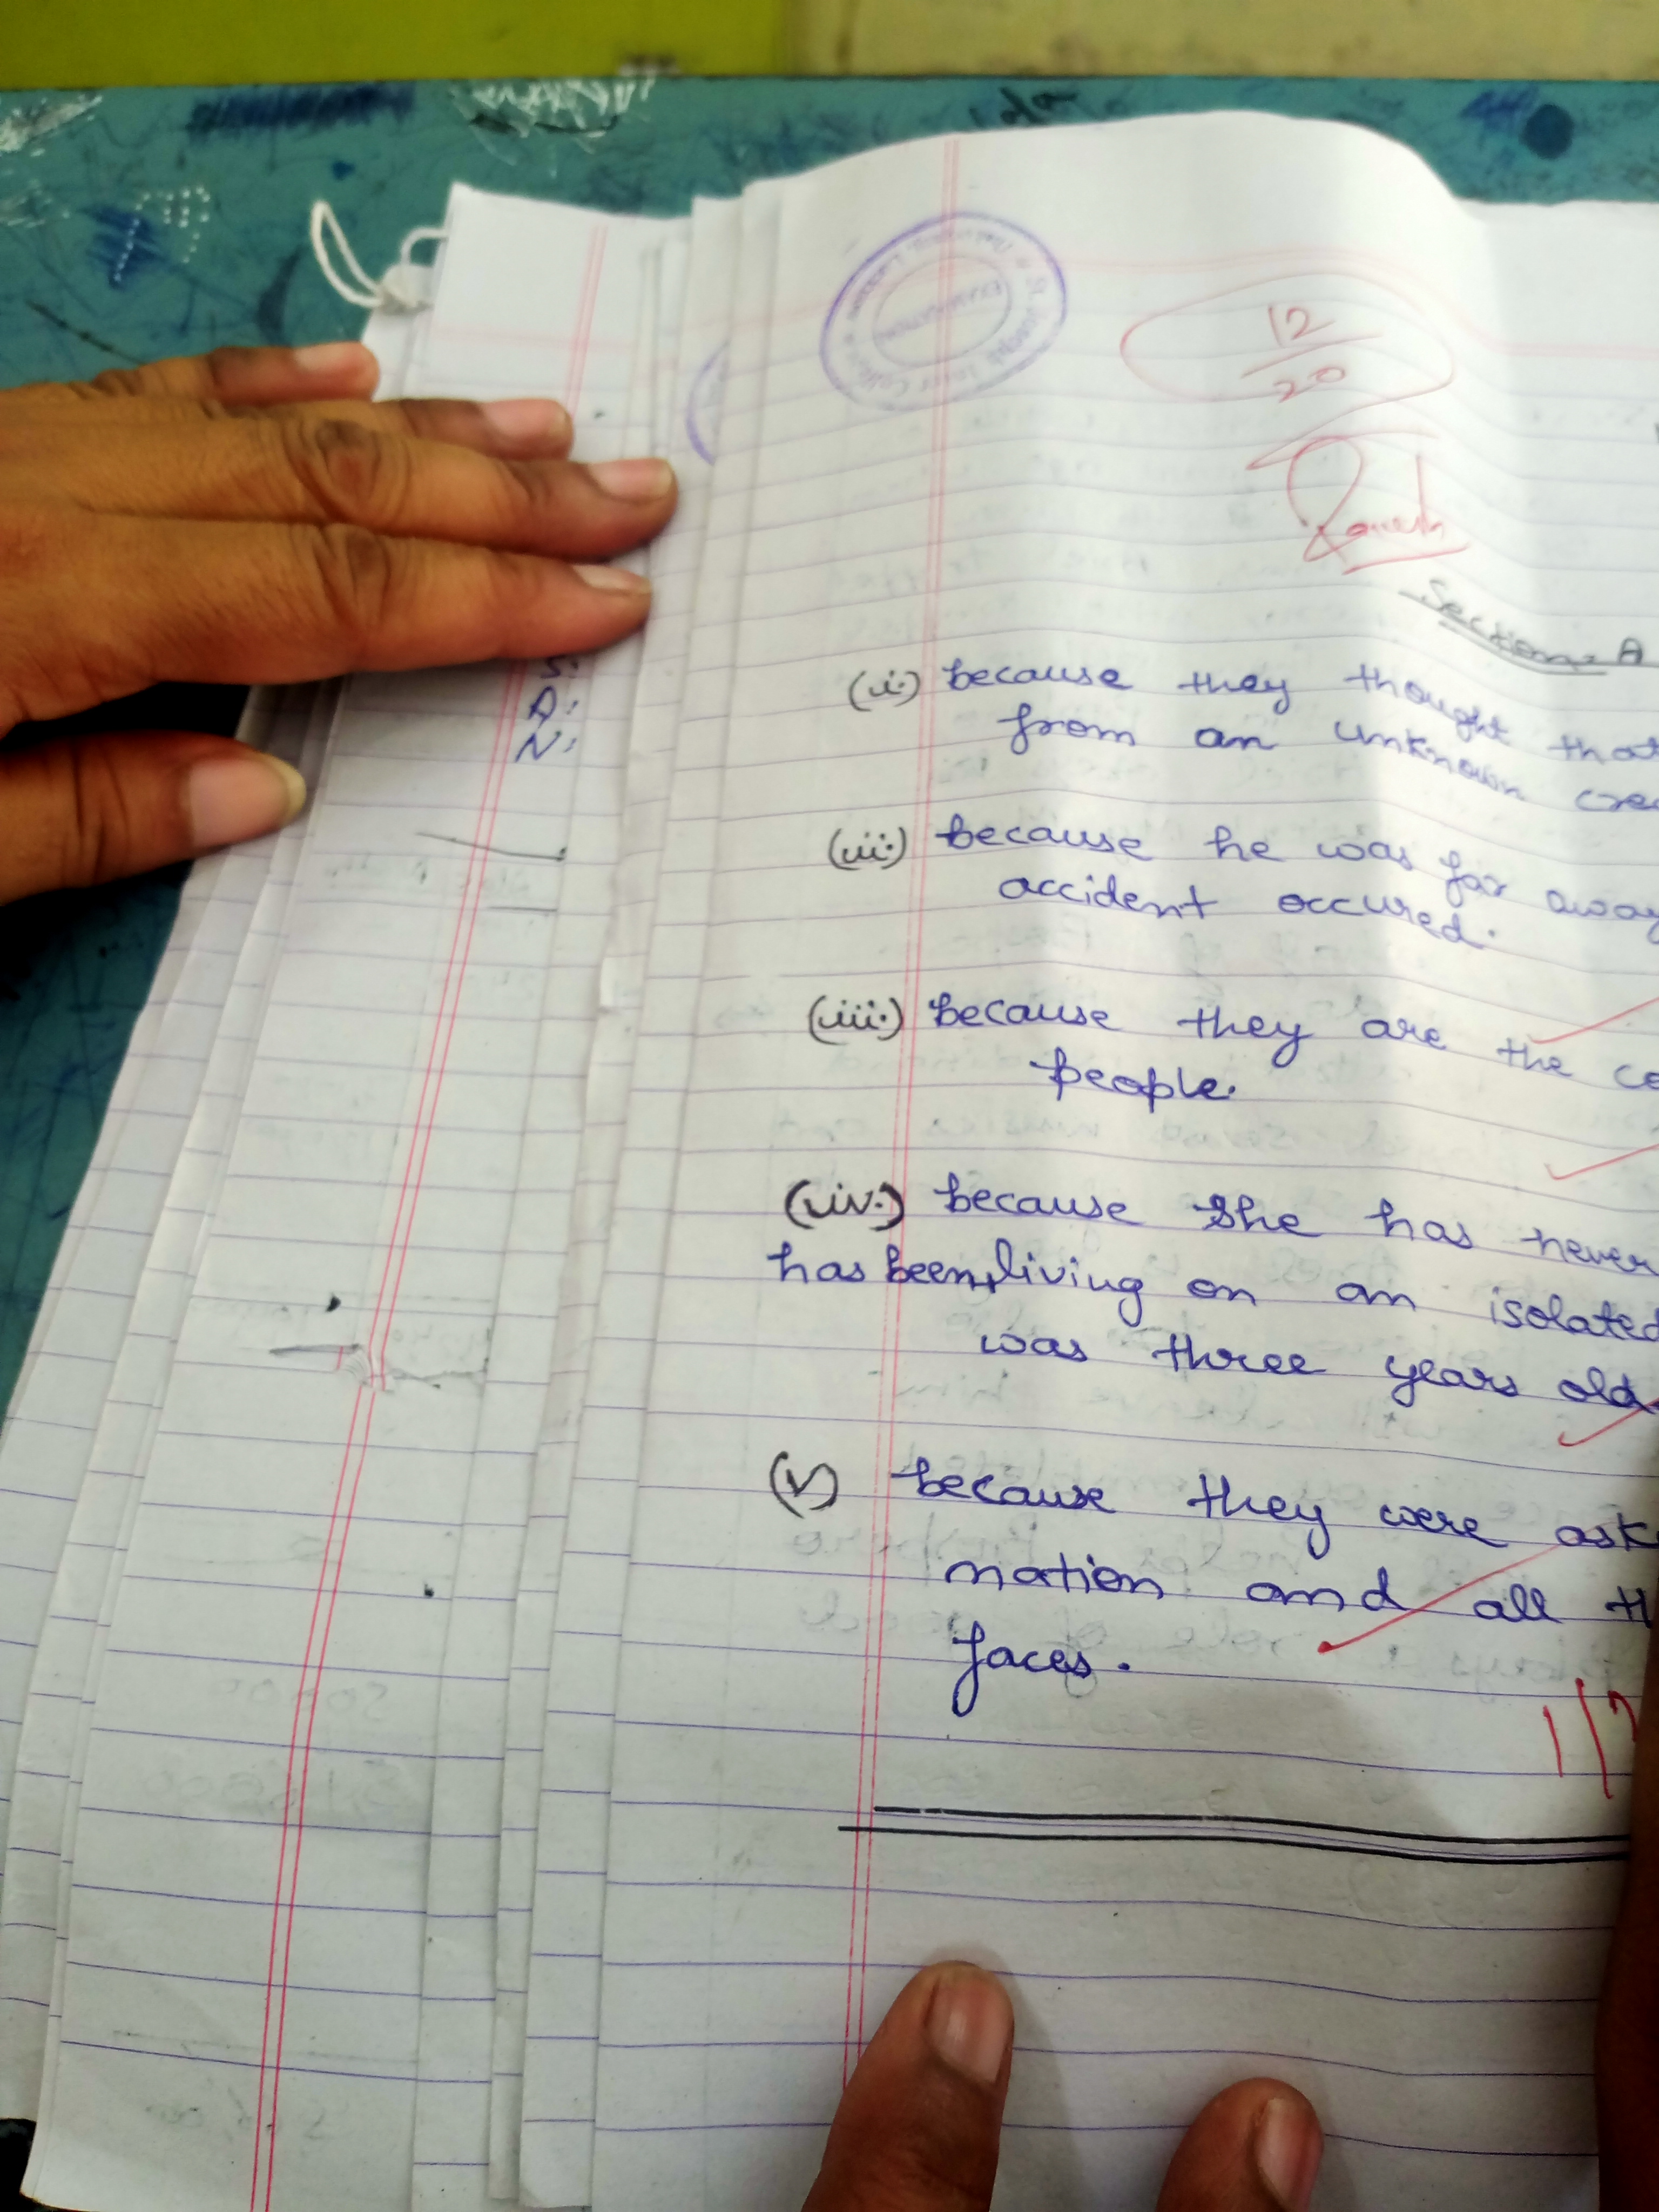 12
20
Section-A
(i.) because they thought that
from an unknown
(ii.) because he was far away
accident occured.
(iii.) because they are the
people.
(iv.) because she has never
has been living on an isolated
was three years old
(v) because they were
nation and all
faces.
S:
A:
N:
EXAMINATION